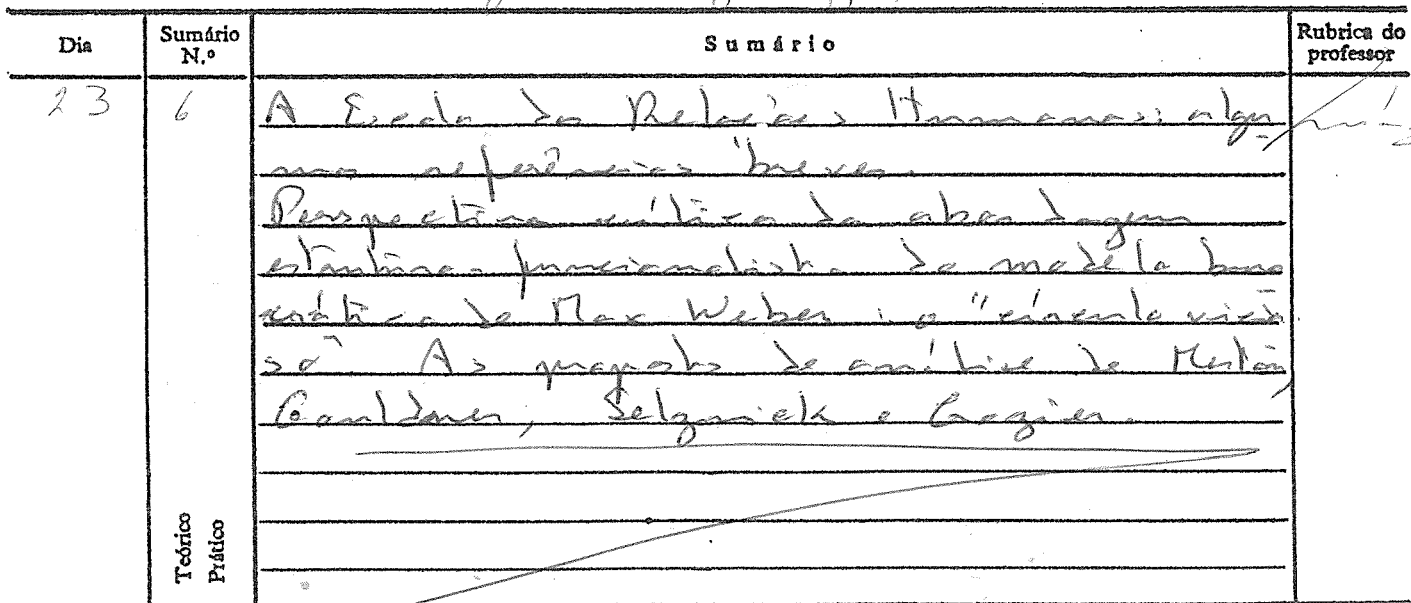 Dia
Sumário N.º
Sumário
Rubrica do professor
23
6
A Escola das Relações Humanas: algu
mas referências breves.
Perspectiva crítica da abordagem
estruturo-funcionalista do modelo buro
crático de Max Weber: o "círculo vicio
so". As propostas de análise de Merton,
Gouldner, Selznick e Crozier.
Teórico
Prático